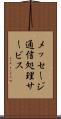 メッセージ
通信処理サ
ービス